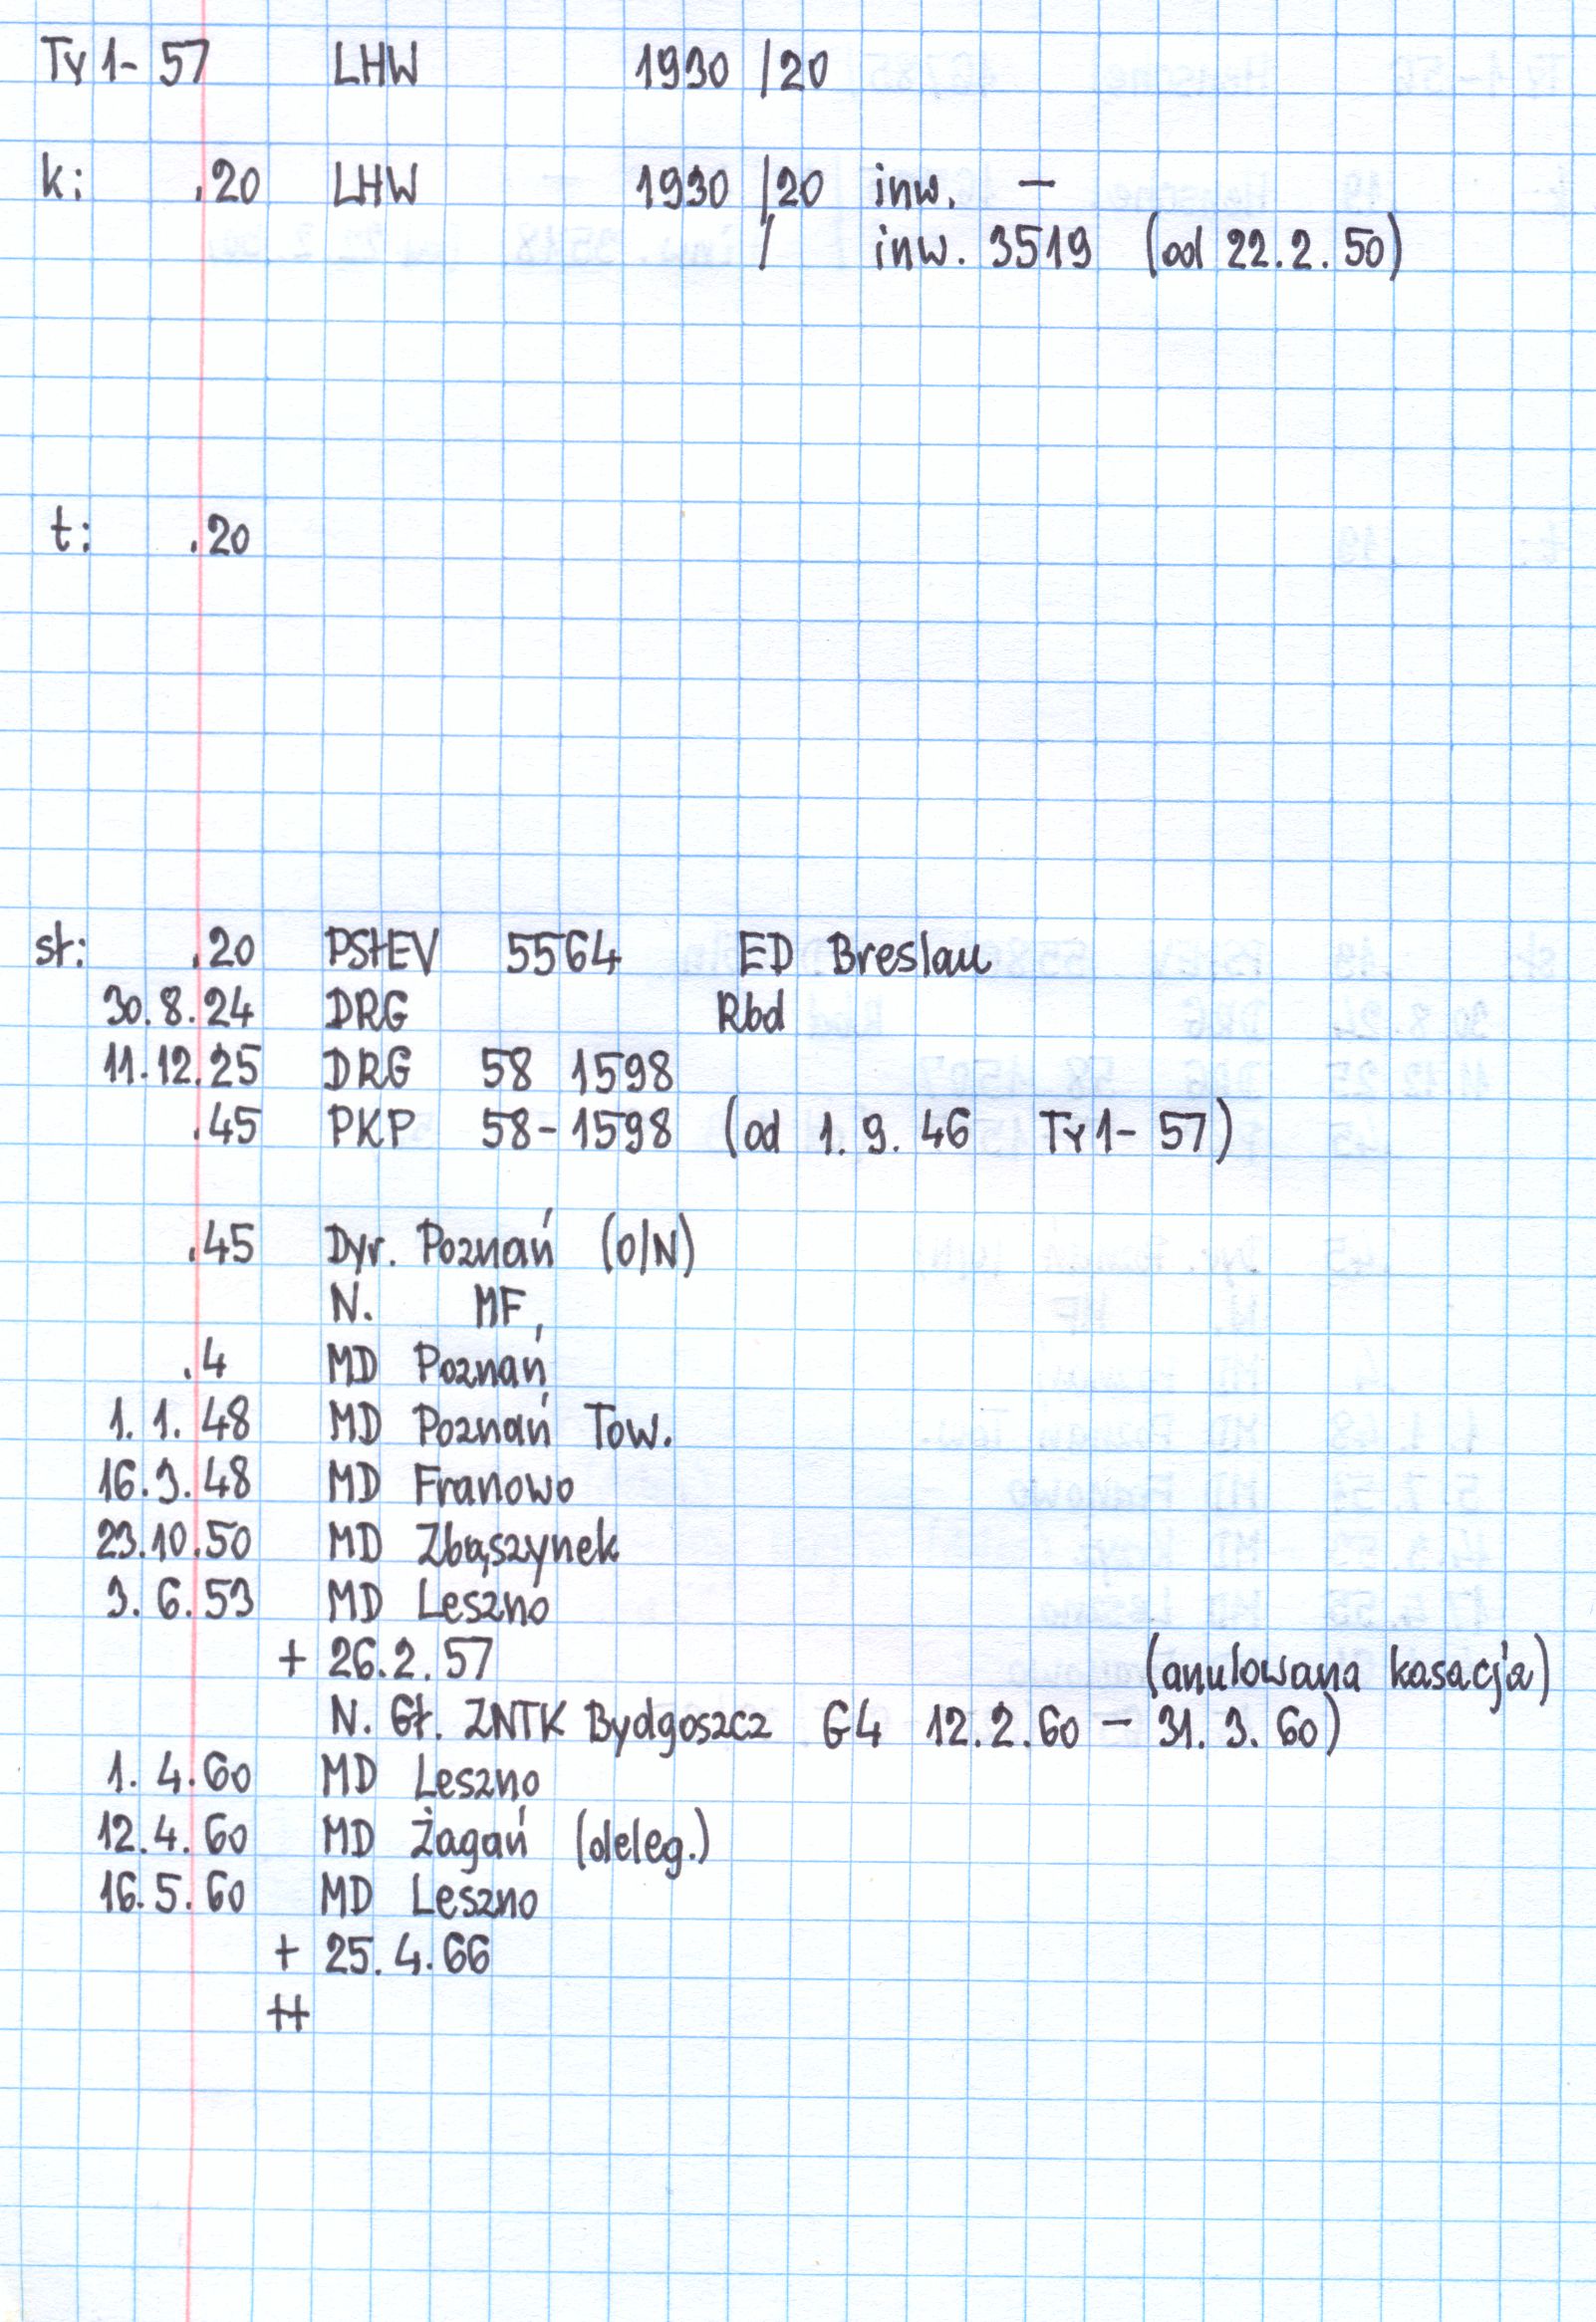 Ty 1- 57 LHW 1930 /20
k: .20 LHW 1930 /20 inw. –
/ inw. 3519 (od 22.2.50)
t: .20
st: .20 PStEV 5564 ED Breslau
30.8.24 DRG Rbd
11.12.25 DRG 58 1598
.45 PKP 58-1598 (od 1.9.46 Ty 1- 57)
.45 Dyr. Poznań (O/N)
N. MF,
.4 MD Poznań
1.1.48 MD Poznań Tow.
16.3.48 MD Franowo
23.10.50 MD Zbąszynek
3.6.53 MD Leszno
+ 26.2.57 (anulowana kasacja)
N. Gł. ZNTK Bydgoszcz G4 12.2.60 – 31.3.60)
1.4.60 MD Leszno
12.4.60 MD Żagań (deleg.)
16.5.60 MD Leszno
+ 25.4.66
++